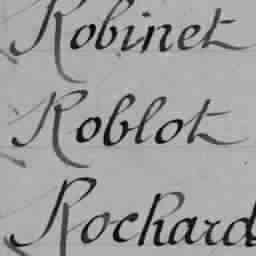 Robinet
Roblot
Rochard